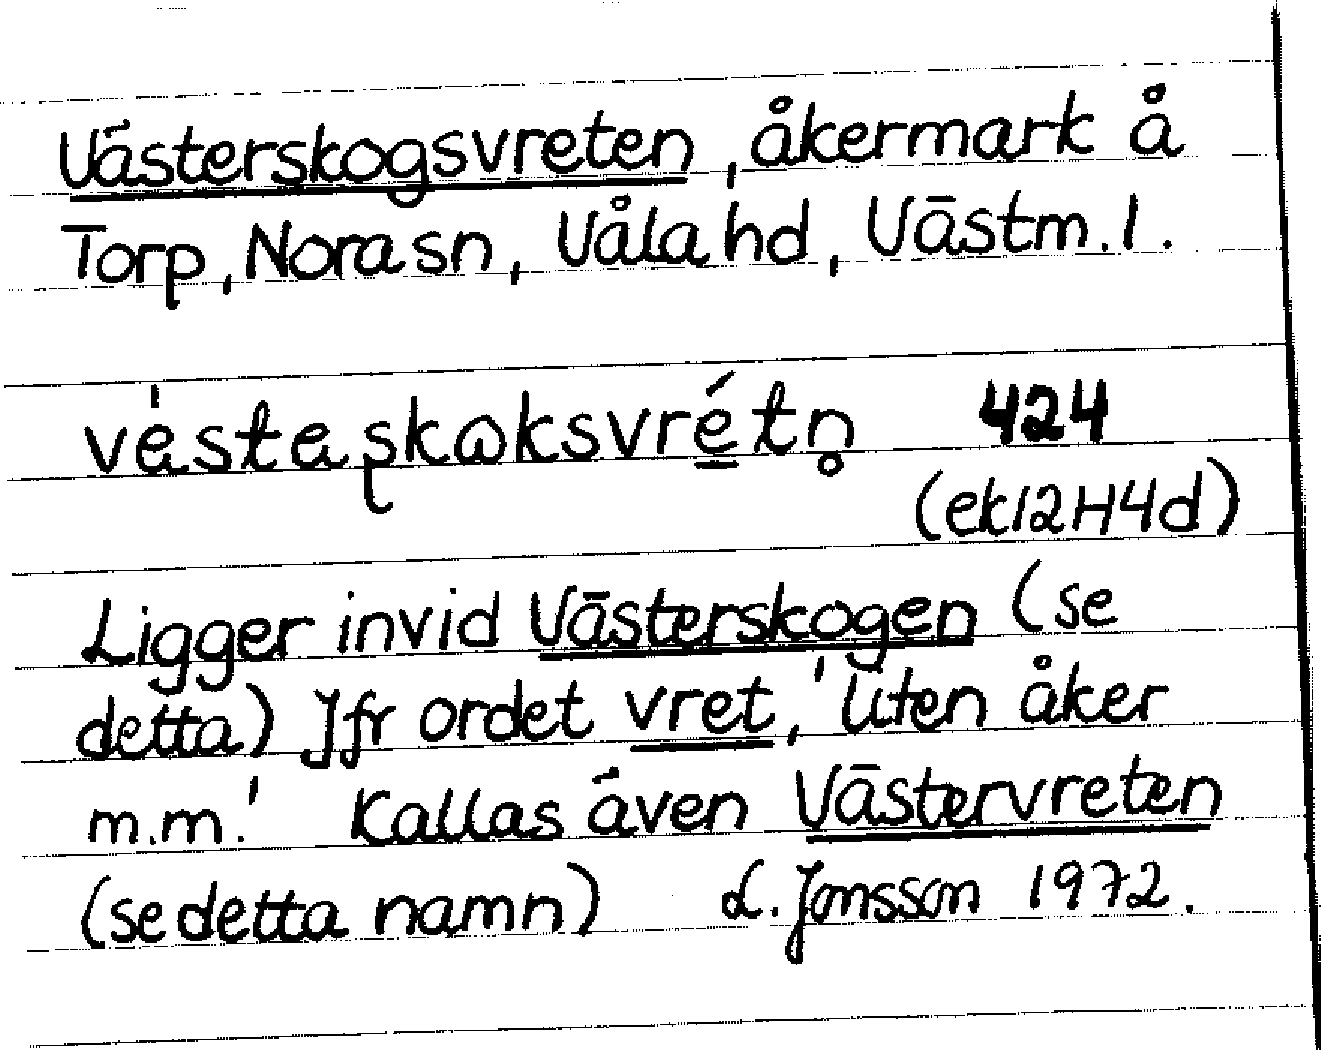 Västerskogsvreten, åkermark å
Torp, Nora sn, Våla hd, Västm. l.
424
(ek12H4d)
Ligger invid Västerskogen (se
detta) Jfr ordet vret, 'liten åker
m.m.' Kallas även Västervreten
(se detta namn) L. Jonsson 1972.